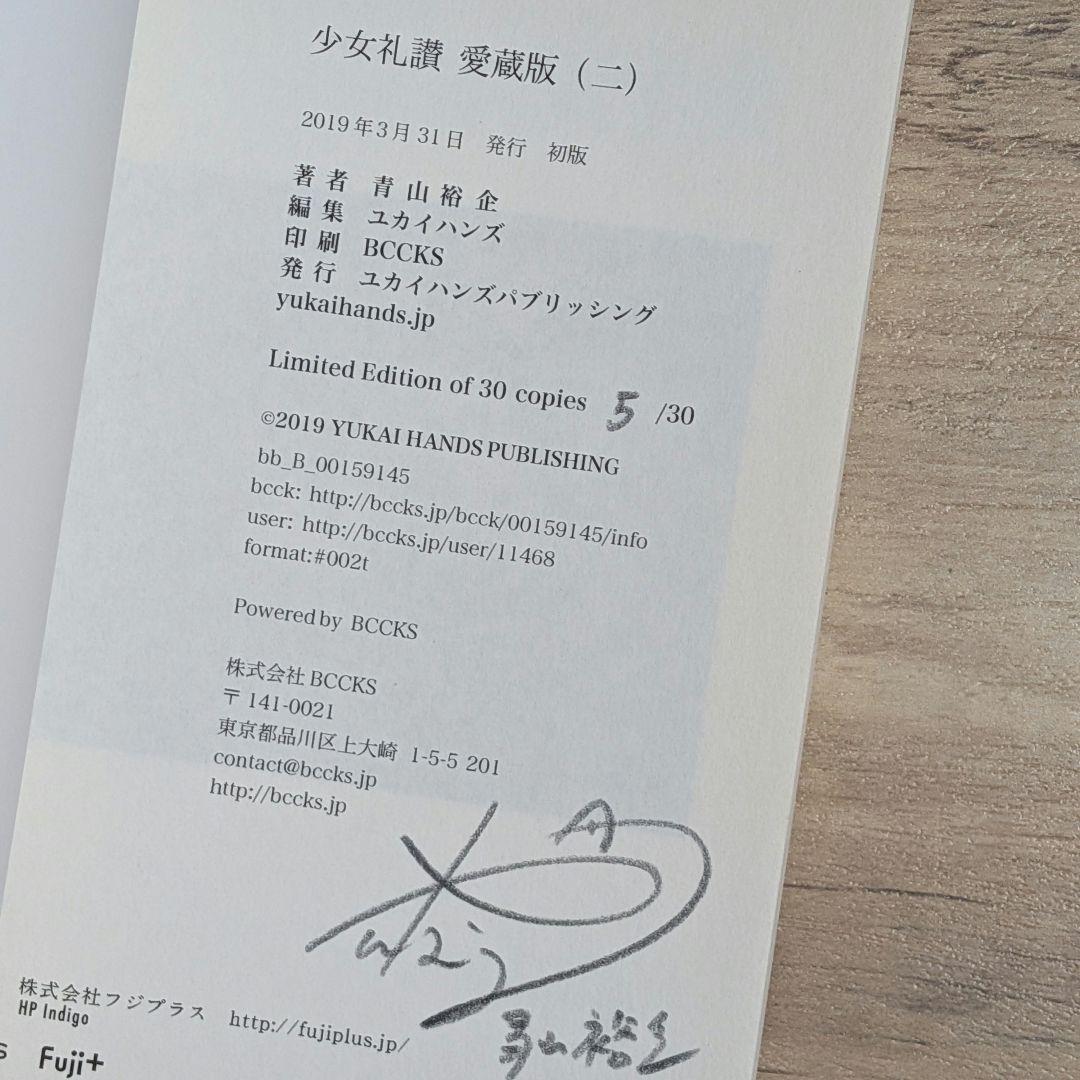 少女礼讃 愛蔵版（二）
2019年3月31日　発行　初版
著 者　青 山 裕 企
編 集　ユカイハンズ
印 刷　BCCKS
発 行　ユカイハンズパブリッシング
yukaihands.jp
Limited Edition of 30 copies 5 /30
©2019 YUKAI HANDS PUBLISHING
bb_B_00159145
bcck: http://bccks.jp/bcck/00159145/info
user: http://bccks.jp/user/11468
format:#002t
Powered by BCCKS
株式会社 BCCKS
〒 141-0021
東京都品川区上大崎 1-5-5 201
contact@bccks.jp
http://bccks.jp
青山裕企
株式会社フジプラス http://fujiplus.jp/
HP Indigo
Fuji+